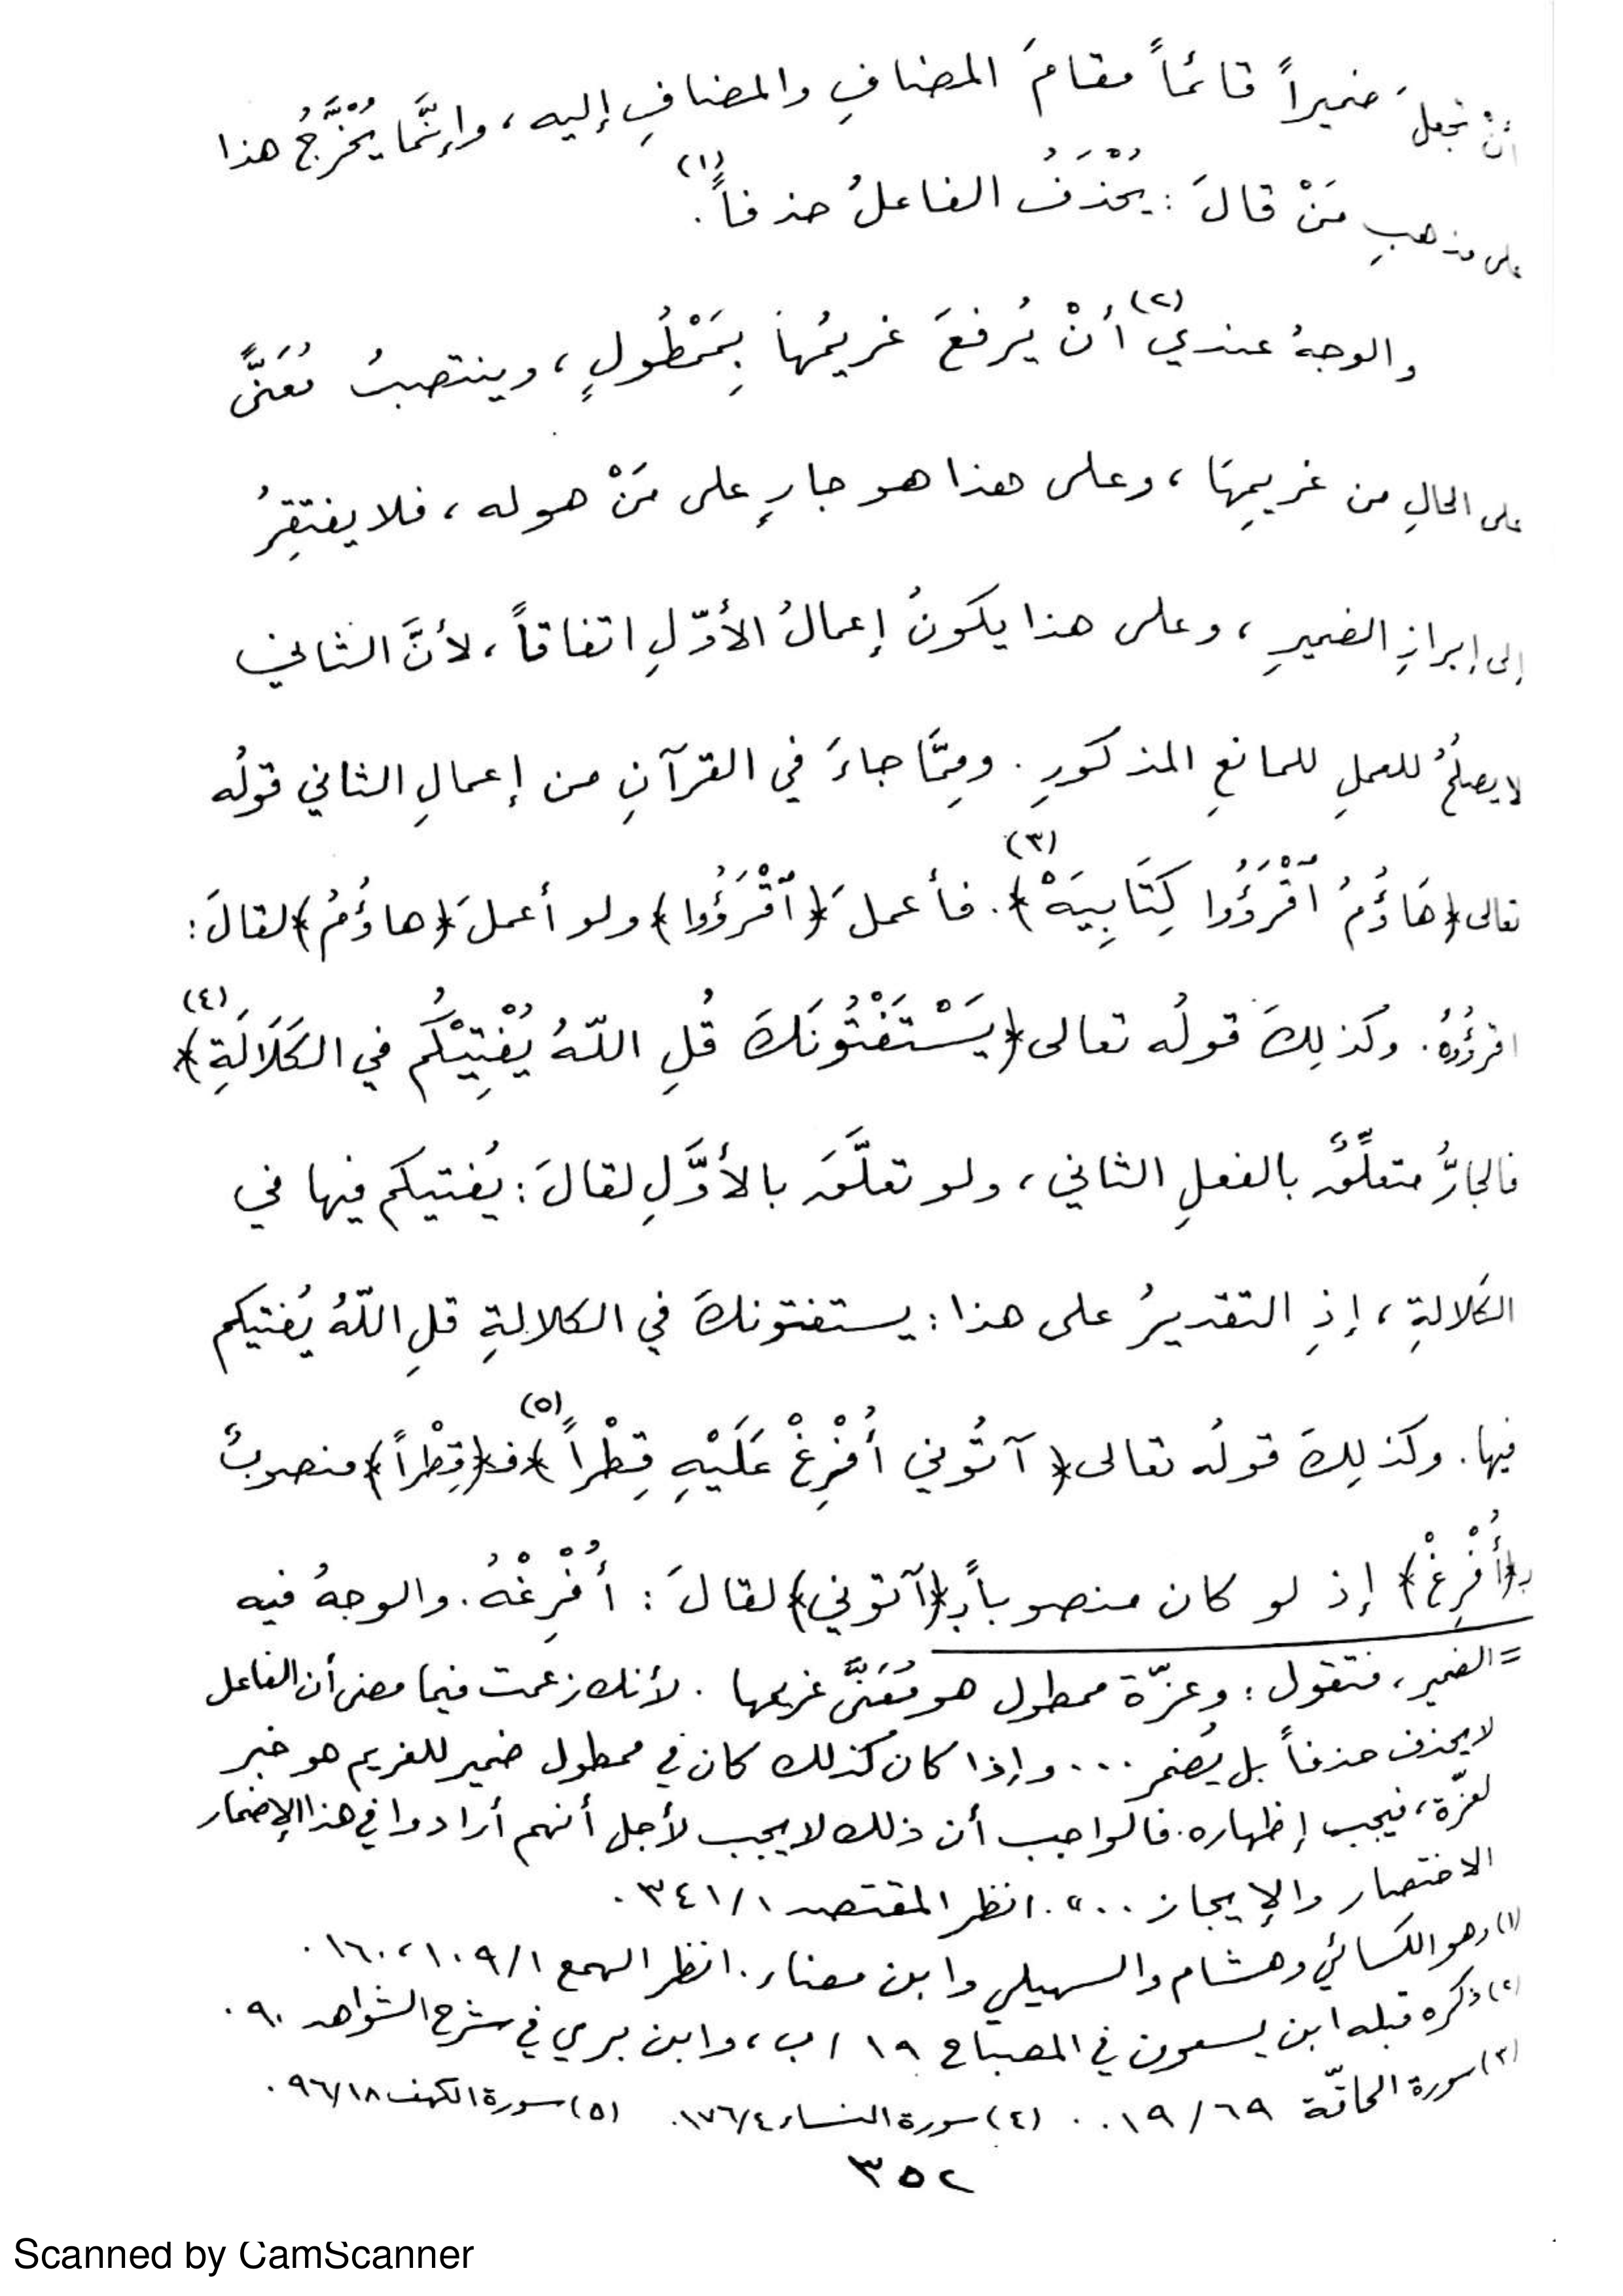 أنْ تجعلَ ضميراً قائماً مقامَ المضافِ والمضافِ إليه، وإنَّما يُخْرَّجُ هذا
على مذهبِ مَنْ قالَ : يُحْذَفُ الفاعلُ حذفاً(١).
والوجهُ عندي(٢) أنْ يُرفعَ غريمُها بِمَمْطُولٍ، وينتصبُ مُعَنًّى
على الحالِ من غريمِهَا، وعلى هذا هو جارٍ على مَنْ هو له، فلا يفتقِرُ
إلى إبرازِ الضميرِ، وعلى هذا يكونُ إعمالُ الأوّلِ اتفاقاً، لأنَّ الثاني
لا يصلحُ للعملِ للمانعِ المذكورِ. وممَّا جاءَ في القرآنِ من إعمالِ الثاني قولُه
تعالى ﴿هَاؤُمُ ٱقْرَؤُوا كِتَابِيَهْ﴾(٣). فأعملَ ﴿ٱقْرَؤُوا﴾ ولو أعملَ ﴿هاؤُمُ﴾ لقالَ:
اقرؤُوهُ. وكذلِكَ قولُه تعالى ﴿يَسْتَفْتُونَكَ قُلِ اللّهُ يُفْتِيْكُم في الكَلَالَةِ﴾(٤)
فالجارُّ متعلِّقٌ بالفعلِ الثاني، ولو تعلَّقَ بالأوَّلِ لقالَ: يُفتيكم فيها في
الكلالةِ، إذِ التقديرُ على هذا: يستفتونكَ في الكلالةِ قلِ اللّهُ يُفتيكم
فيها. وكذلِكَ قولُه تعالى ﴿آتُوني أُفْرِغْ عَلَيْهِ قِطْراً﴾(٥) فـ﴿قِطْراً﴾ منصوبٌ
بـ﴿أُفْرِغْ﴾ إذ لو كان منصوباً بـ﴿آتوني﴾ لقالَ: أُفْرِغْهُ. والوجهُ فيه
= الضمير، فتقول: وعزّة ممطول هو مُعَنًّى غريمها. لأنك زعمت فيما مضى أن الفاعل
لا يحذف حذفاً بل يُضمر ... وإذا كان كذلك كان في ممطول ضمير للغريم هو خبر
لعزّة، فيجب إظهاره. فالواجب أن ذلك لا يجب لأجل أنهم أرادوا في هذا الإضمار
الاختصار والإيجاز ..". انظر المقتصد ٣٤١/١.
(١) وهو الكسائي وهشام والسهيلي وابن مضاء. انظر الهمع ١٠٩/١، ١٦٠.
(٢) ذكره قبله ابن يسعون في المصباح ١٩/ب، وابن بري في شرح الشواهد ٩٠.
(٣) سورة الحاقّة ١٩/٦٩. (٤) سورة النساء ١٧٦/٤. (٥) سورة الكهف ٩٦/١٨.
٣٥٢
Scanned by CamScanner